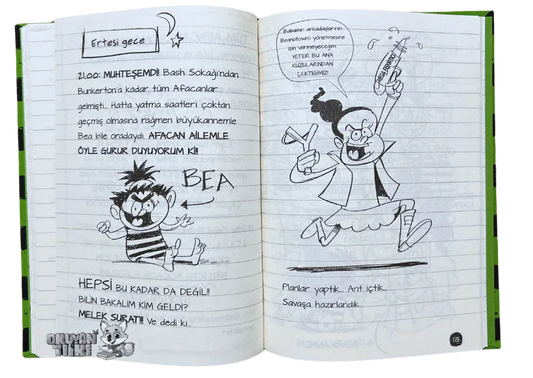 Ertesi gece
21.00: MUHTEŞEMDİ! Bash Sokağı'ndan
Bunkerton'a kadar tüm Afacanlar
gelmişti... Hatta yatma saatleri çoktan
geçmiş olmasına rağmen büyükannemle
Bea bile oradaydı. AFACAN AİLEMLE
ÖYLE GURUR DUYUYORUM Kİ!!
BEA
HEPSİ BU KADAR DA DEĞİL!!
BİLİN BAKALIM KİM GELDİ?
MELEK SURAT!!! Ve dedi ki...
OKUYAN
TİLKİ
Babamın arkadaşlarının
Beanotown'ı yönetmesine
izin vermeyeceğim.
YETER BU ANA
KUZULARINDAN
ÇEKTİĞİMİZ!
Planlar yaptık... Ant içtik...
Savaşa hazırlandık.